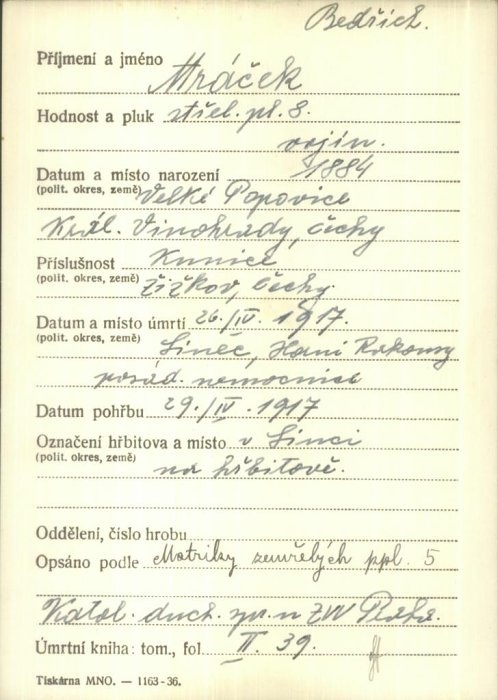 Bedřich.
Příjmení a jméno Mráček
Hodnost a pluk střel. pl. 8.
vojín.
Datum a místo narození 1884
(polit. okres, země) Velké Popovice
Král. Vinohrady, Čechy
Příslušnost Kunice
(polit. okres, země) Žižkov, Čechy.
Datum a místo úmrtí 26./IV. 1917.
(polit. okres, země) Linec, Horní Rakousy
posád. nemocnice
Datum pohřbu 29./IV. 1917
Označení hřbitova a místo v Linci
(polit. okres, země) na hřbitově.
Oddělení, číslo hrobu
Opsáno podle Matriky zemřelých ppl. 5
Katol. duch. spr. u ZVV Praha.
Úmrtní kniha: tom., fol II. 39.
Tiskárna MNO. — 1163-36.